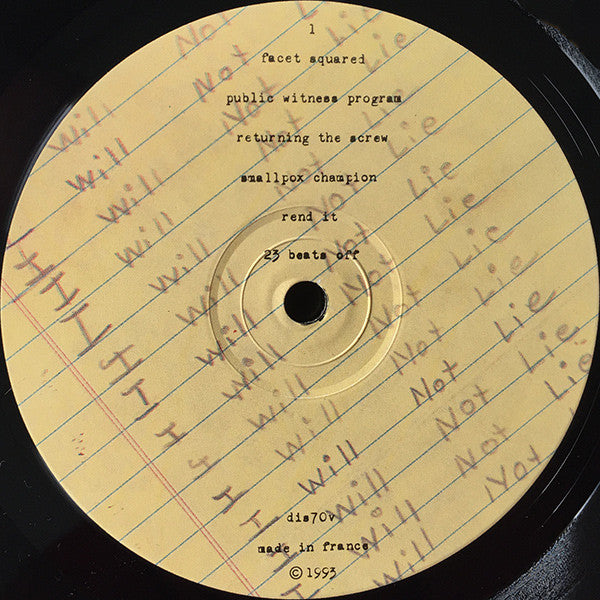 1
facet squared
public witness program
returning the screw
smallpox champion
rend it
23 beats off
dis70v
made in france
© 1993
Will Not
I Will Not Lie
I Will Not Lie
I Will Not Lie
I Will Not Lie
I Will Not Lie
I Will Not Lie
I Will Not Lie
I Will Not Lie
I Will Not Lie
I Will Not Lie
I Will Not Lie
I Will Not Lie
Will Not Lie